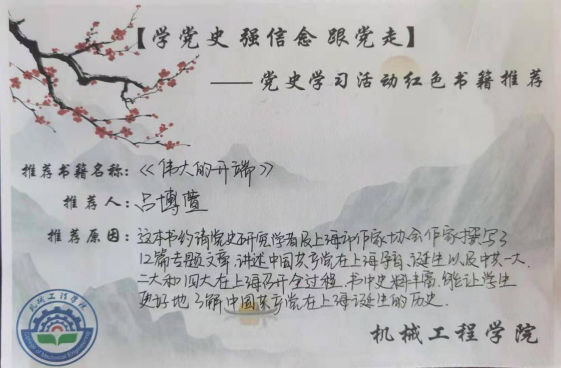 【学党史 强信念 跟党走】
——党史学习活动红色书籍推荐
推荐书籍名称：《伟大的开端》
推荐人：吕博萱
推荐原因：这本书约请党史研究学者及上海市作家协会作家撰写了
12篇专题文章，讲述中国共产党在上海孕育、诞生以及中共一大、
二大和四大在上海召开全过程。书中史料丰富，能让学生
更好地了解中国共产党在上海诞生的历史。
机械工程学院
机械工程学院